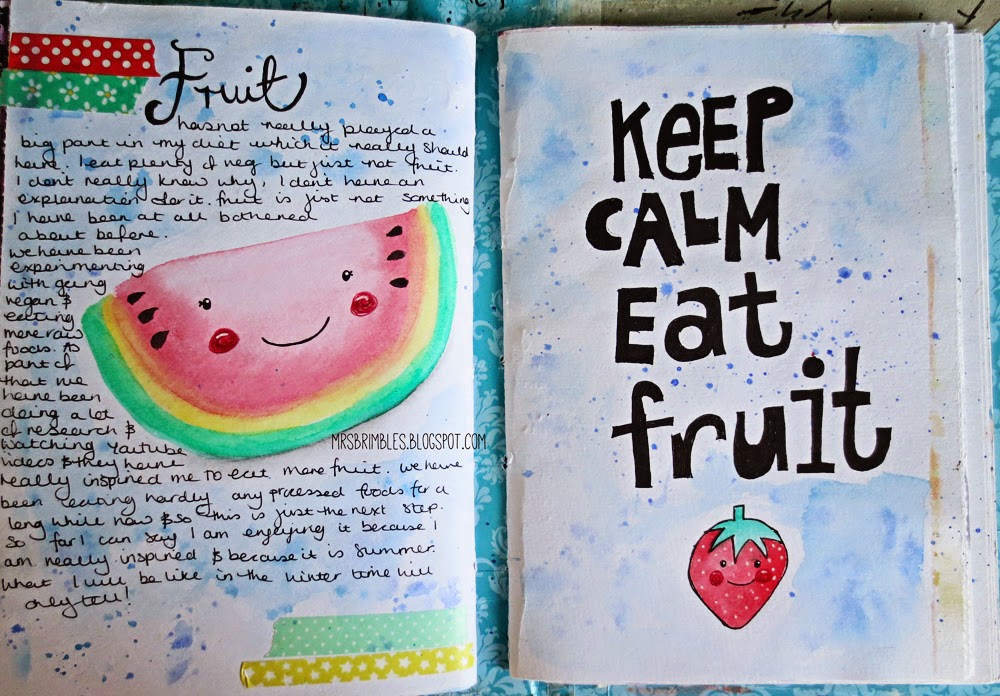 Fruit
has not really played a
big part in my diet which it really should
have. I eat plenty of veg but just not fruit.
I don't really know why, I don't have an
explanation for it. fruit is just not something
I have been at all bothered
about before.
we have been
experimenting
with going
vegan &
eating
more raw
foods. As
part of
that we
have been
doing a lot
of research &
watching Youtube
videos & they have
really inspired me to eat more fruit. we have
been eating hardly any processed foods for a
long while now & so this is just the next step.
So far I can say I am enjoying it because I
am really inspired & because it is summer.
What I will be like in the winter time will
only tell!
MRSBRIMBLES.BLOGSPOT.COM
KEEP
CALM
EAT
fruit